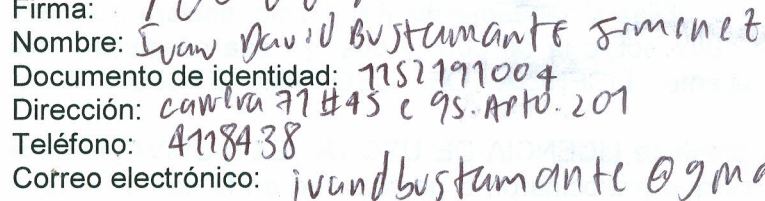 Firma:
Nombre: Ivan David Bustamante Jimenez
Documento de identidad: 1152191004
Dirección: carrera 71 #45 e 95. Apto. 201
Teléfono: 4118438
Correo electrónico: ivandbustamante @gma